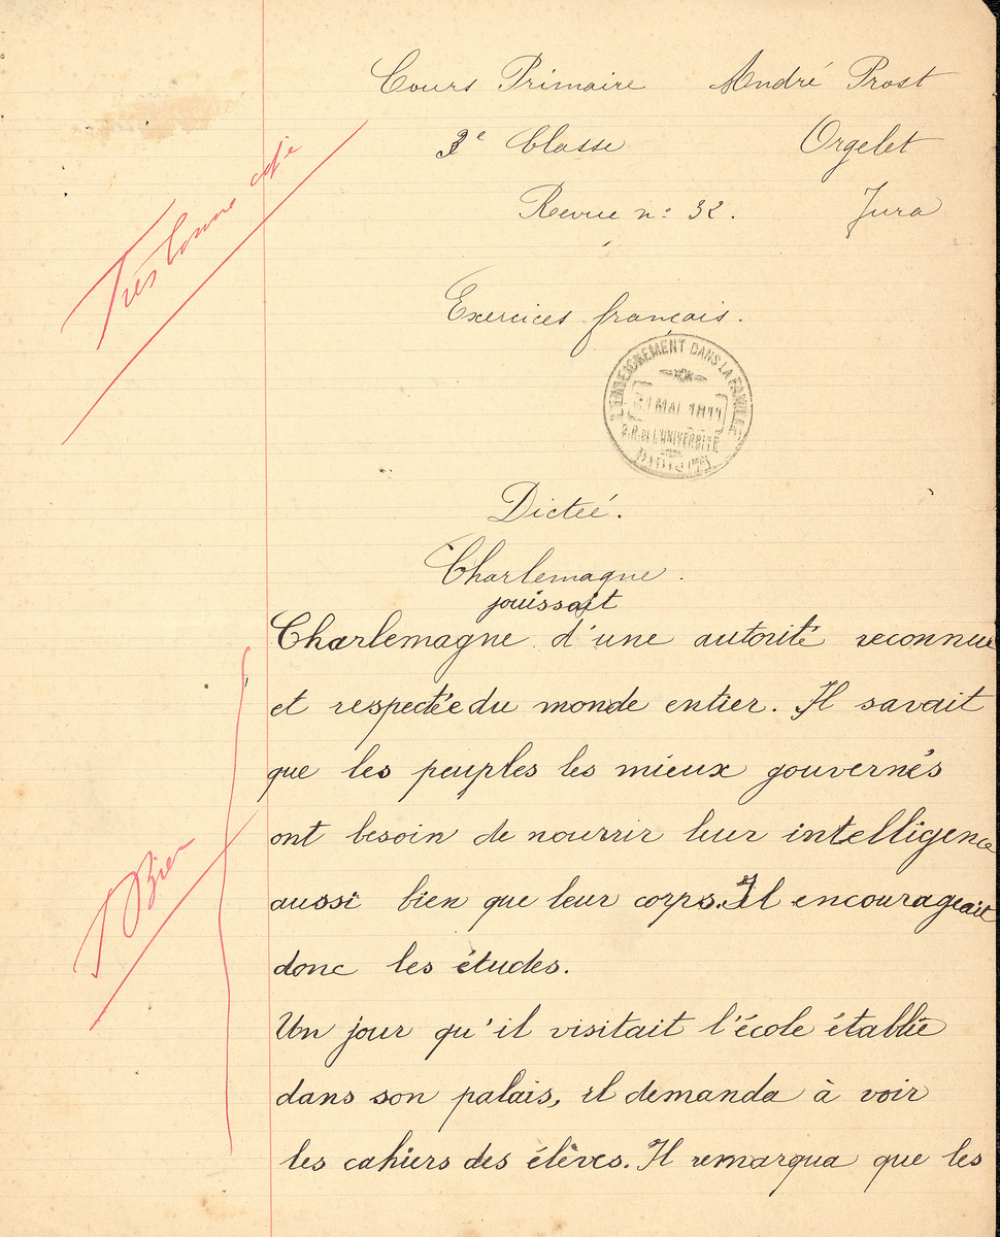 Cours Primaire André Prost
3e Classe Orgelet
Revue n: 32. Jura
Très bonne
Exercices français.
L'ENSEIGNEMENT DANS LA FAMILLE
MAI 1911
R. DE L'UNIVERSITÉ
Dicteé.
Charlemagne.
jouissait
Charlemagne d'une autorité reconnue
et respectée du monde entier. Il savait
que les peuples les mieux gouvernés
ont besoin de nourrir leur intelligence
aussi bien que leur corps. Il encourageait
donc les études.
T Bien
Un jour qu'il visitait l'école établie
dans son palais, il demanda à voir
les cahiers des élèves. Il remarqua que les